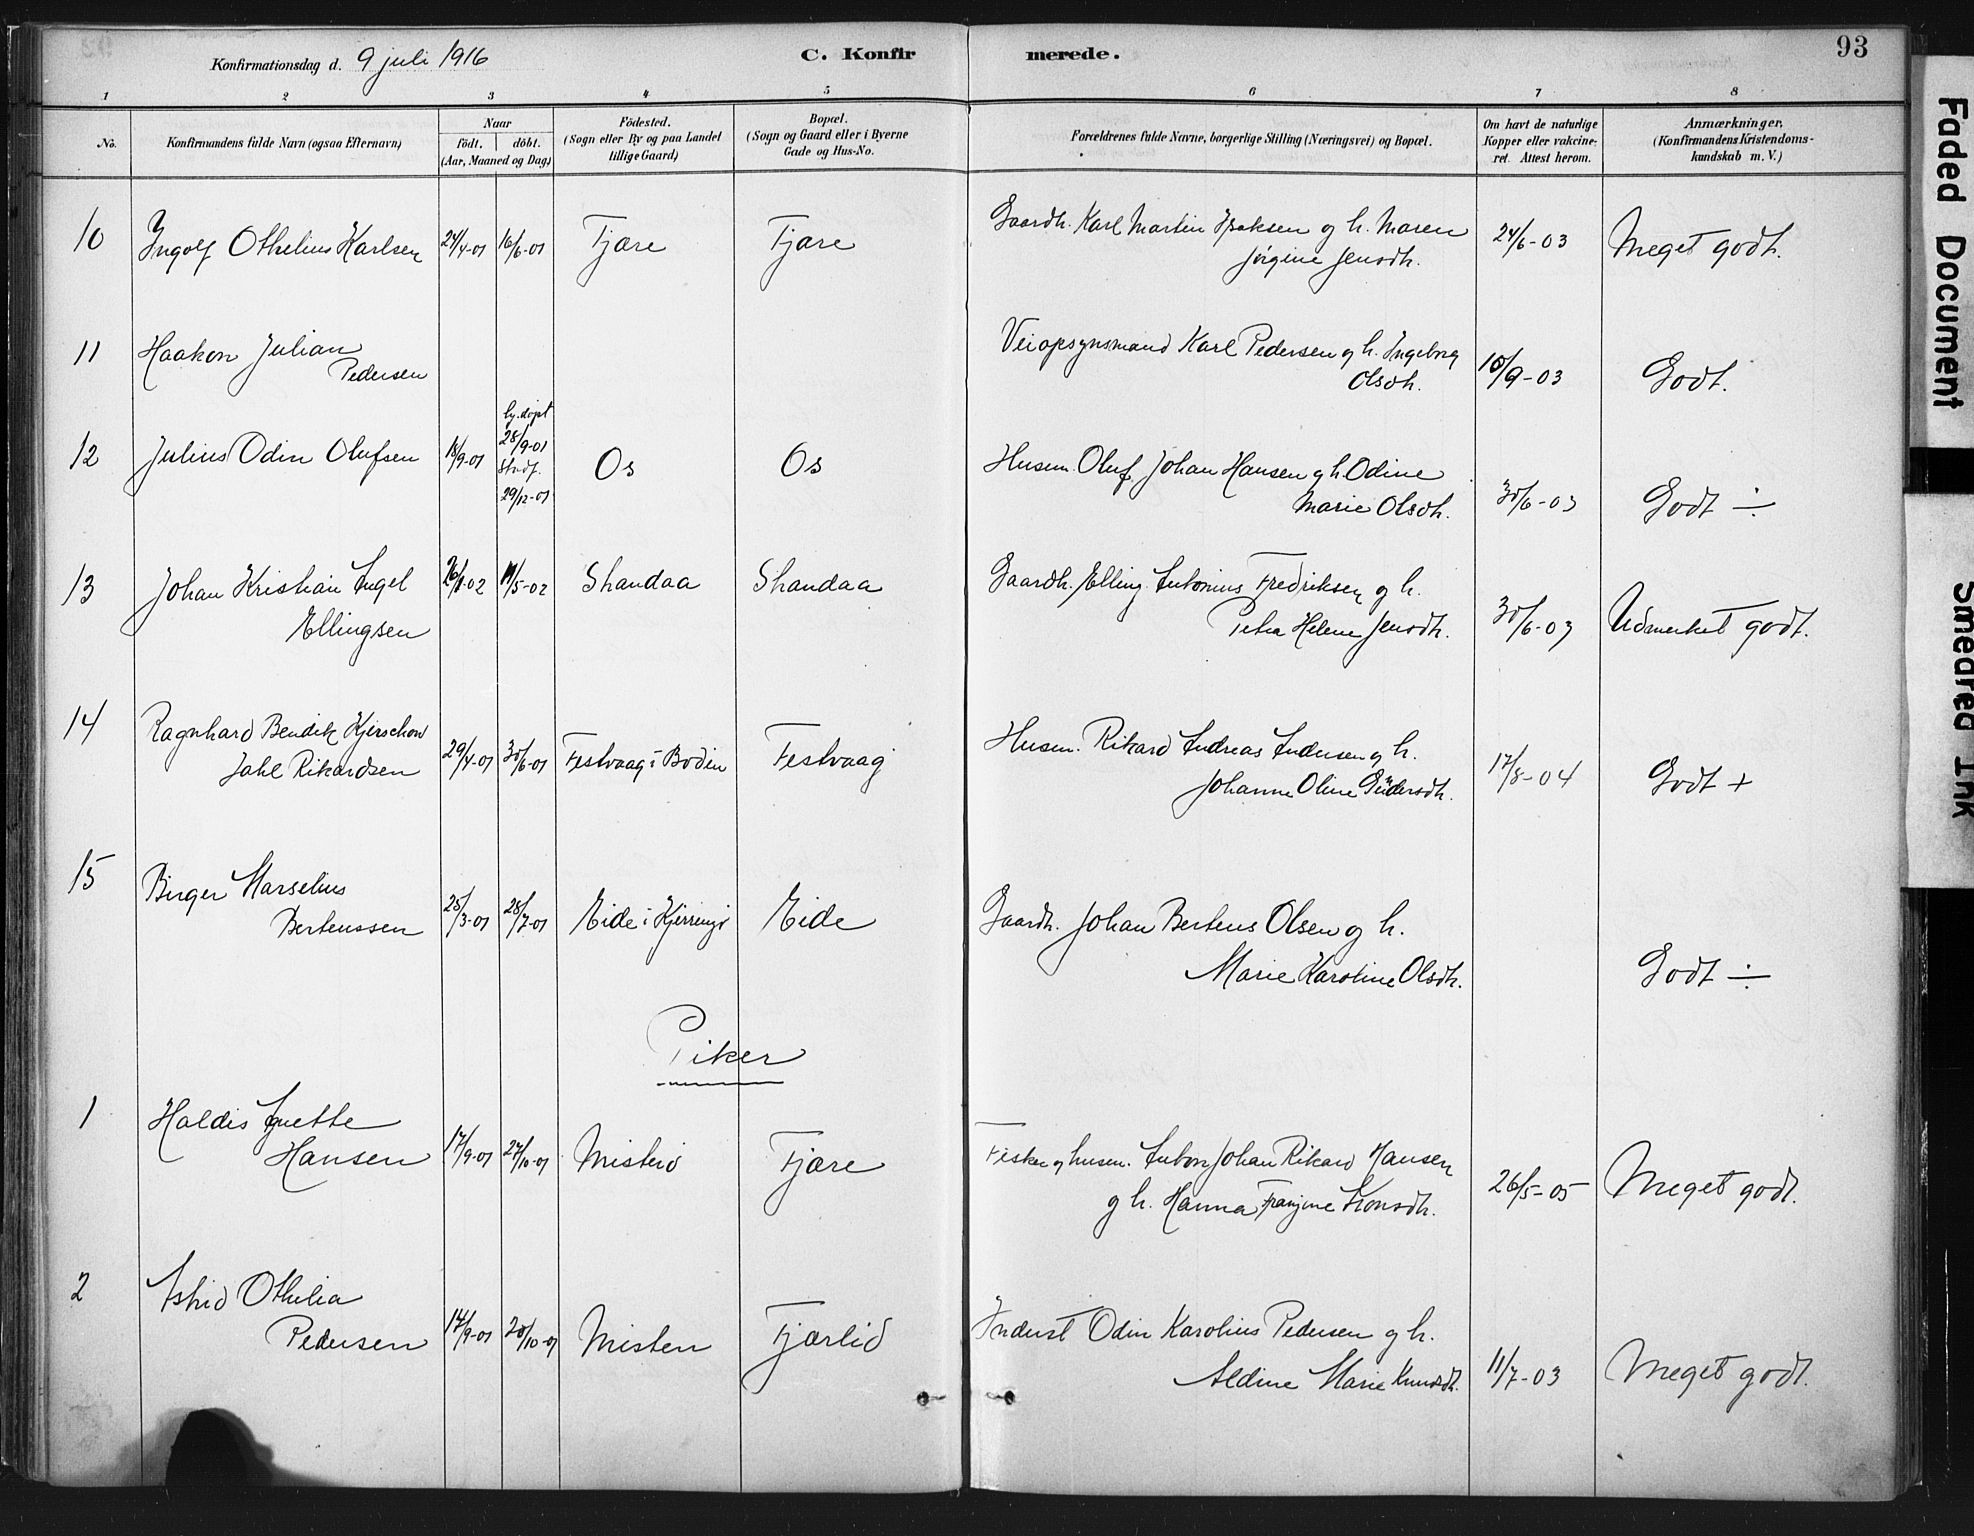 Konfirmationsdag d. 9 juli 1916
C. Konfirmerede.
93
1 2 3 4 5 6 7 8
No.
Konfirmandens fulde Navn (ogsaa Efternavn)
Naar
födt. döbt.
(Aar, Maaned og Dag)
Födested.
(Sogn eller By og paa Landet
tillige Gaard)
Bopæl.
(Sogn og Gaard eller i Byerne
Gade og Hus-No.
Forældrenes fulde Navne, borgerlige Stilling (Næringsvei) og Bopæl.
Om havt de naturlige
Kopper eller vakcine-
ret. Attest herom.
Anmærkninger.
(Konfirmandens Kristendoms-
kundskab m. V.)
10 Ingolf Othelius Karlsen 24/4-01 16/6-01 Fjære Fjære
Gaardb. Karl Martin Isaksen og h. Maren
Jørgine Jensdtr. 24/6-03 Meget godt.
11 Haakon Julian
Pedersen
Veiopsynsmand Karl Pedersen og h. Ingeborg
Olsdtr. 10/9-03 Godt.
12 Julius Odin Olufsen 18/9-01
hj.døpt
28/9-01
stadf.
29/12-01
Os Os
Husm. Oluf Johan Hansen og h. Odine
Marie Olsdtr. 30/6-03 Godt ÷
13 Johan Kristian Angel
Ellingsen 26/1-02 19/5-02 Skandaa Skandaa
Gaardb. Elling Antonius Fredriksen og h.
Petra Helene Jensdtr. 30/6-03 Udmerket godt.
14 Ragnhard Bendik Kjerschow
Jahl Rikardsen 29/4-01 30/6-01 Festvaag i Bodin Festvaag
Husm. Rikard Andreas Andersen og h.
Johanne Oline 17/8-04 Godt +
15 Birger Marselius
Bertenssen 25/3-01 28/7-01 Eide i Kjerringø Eide
Gaardb. Johan Bertens Olsen og h.
Marie Karoline Olsdtr. Godt ÷
Piker
1 Haldis Agnette
Hansen 17/9-01 27/10-01 Misten Fjære
Fisker og husm. Anton Johan Rikard Hansen
og h. Hanna 26/5-05 Meget godt.
2 Astrid Othilia
Pedersen 14/9-01 20/10-01 Misten Fjærlid
Inderst Odin Karolius Pedersen og h.
Aldine Marie Knudsdtr. 11/7-03 Meget godt.
Faded Document
Smeared Ink